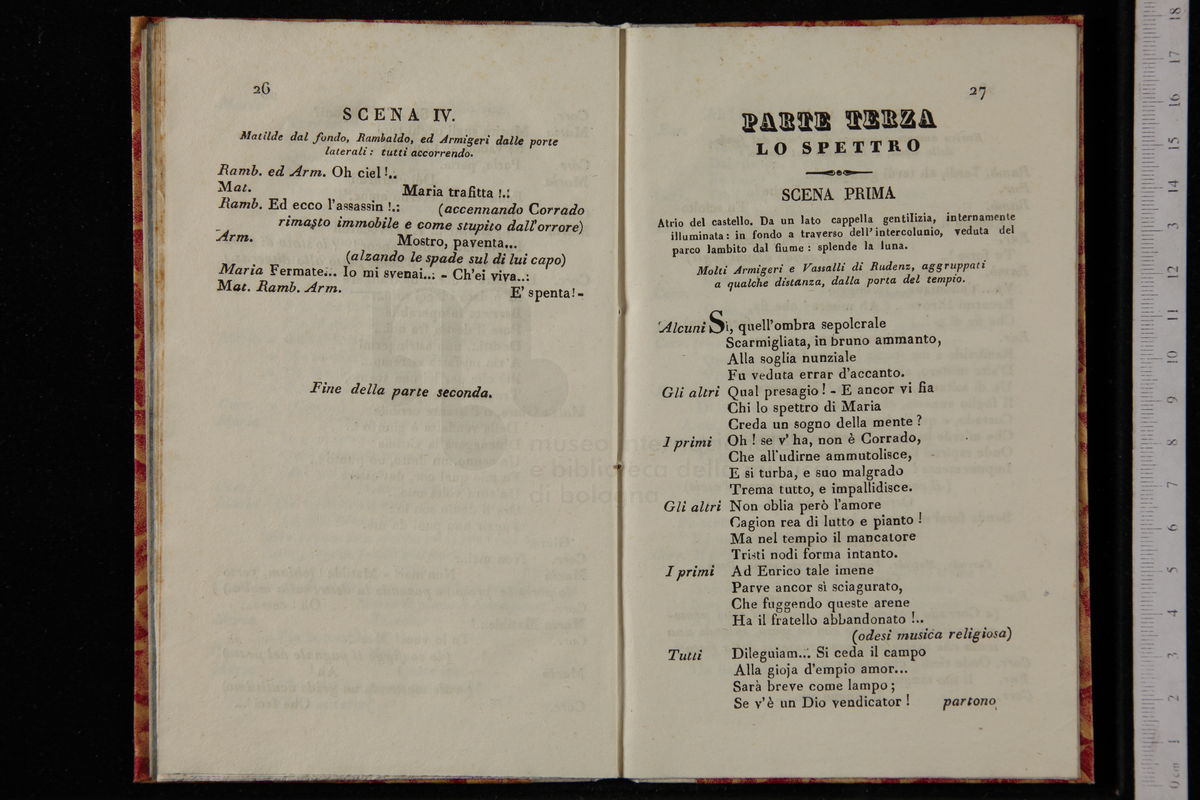 26
SCENA IV.
Matilde dal fondo, Rambaldo, ed Armigeri dalle porte
laterali: tutti accorrendo.
Ramb. ed Arm. Oh ciel!..
Mat. Maria trafitta !.:
Ramb. Ed ecco l'assassin !.: (accennando Corrado
rimasto immobile e come stupito dall'orrore)
Arm. Mostro, paventa...
(alzando le spade sul di lui capo)
Maria Fermate... Io mi svenai..: - Ch'ei viva..:
Mat. Ramb. Arm. E' spenta!-
Fine della parte seconda.
27
PARTE TERZA
LO SPETTRO
SCENA PRIMA
Atrio del castello. Da un lato cappella gentilizia, internamente
illuminata: in fondo a traverso dell'intercolunio, veduta del
parco lambito dal fiume: splende la luna.
Molti Armigeri e Vassalli di Rudenz, aggruppati
a qualche distanza, dalla porta del tempio.
Alcuni Sì, quell'ombra sepolcrale
Scarmigliata, in bruno ammanto,
Alla soglia nunziale
Fu veduta errar d'accanto.
Gli altri Qual presagio! - E ancor vi fia
Chi lo spettro di Maria
Creda un sogno della mente?
I primi Oh! se v'ha, non è Corrado,
Che all'udirne ammutolisce,
E si turba, e suo malgrado
Trema tutto, e impallidisce.
Gli altri Non oblia però l'amore
Cagion rea di lutto e pianto!
Ma nel tempio il mancatore
Tristi nodi forma intanto.
I primi Ad Enrico tale imene
Parve ancor sì sciagurato,
Che fuggendo queste arene
Ha il fratello abbandonato !..
(odesi musica religiosa)
Tutti Dileguiam... Si ceda il campo
Alla gioja d'empio amor...
Sarà breve come lampo;
Se v'è un Dio vendicator! partono
museo inter
e biblioteca della
di bologna